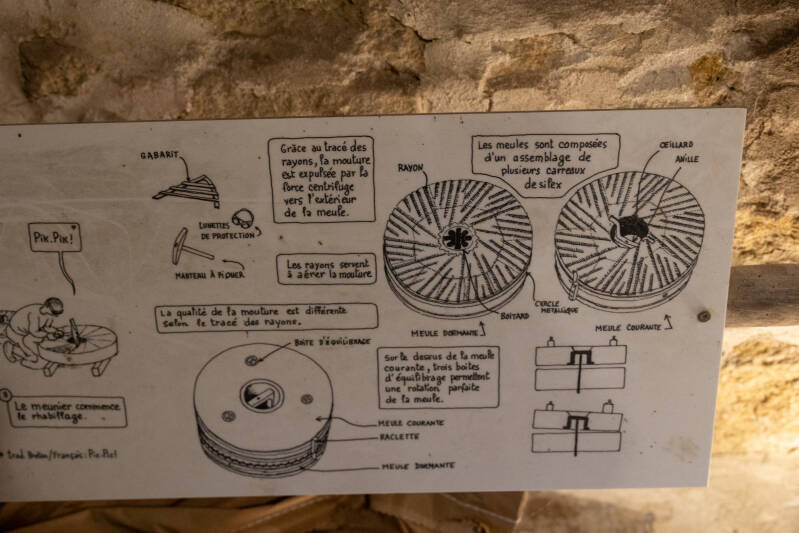 GABARIT
LUNETTES
DE PROTECTION
MARTEAU À PIQUER
Pik.Pik!
Grâce au tracé des
rayons, la mouture
est expulsée par la
force centrifuge
vers l'extérieur
de la meule.
Les rayons servent
à aérer la mouture
La qualité de la mouture est différente
selon le tracé des rayons.
Les meules sont composées
d'un assemblage de
plusieurs carreaux
de silex
RAYON
ŒILLARD
ANILLE
BOITARD
CERCLE
METALLIQUE
MEULE DORMANTE
MEULE COURANTE
BOITE D'ÉQUILIBRAGE
Sur le dessus de la meule
courante, trois boites
d'équilibrage permettent
une rotation parfaite
de la meule.
MEULE COURANTE
RACLETTE
MEULE DORMANTE
Le meunier commence
le rhabillage.
* trad. Breton/Français: Pik.Pik!